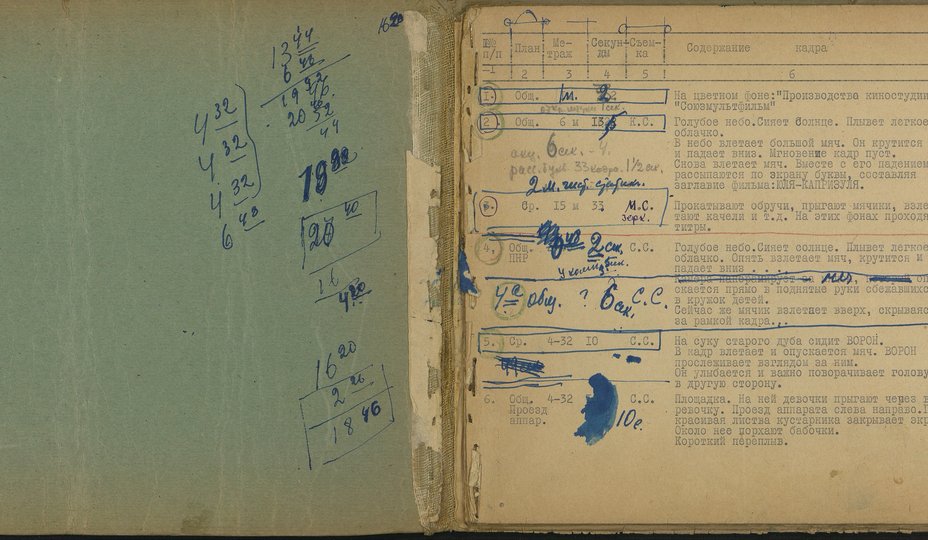 13 44
6 48
19 92
20 52
44
4 32
4 32
4 32
6 48
20 40
16
4 20
16 20
2 26
18 46
№ п/п План Метраж Секунды Съемка Содержание кадра
1 2 3 4 5 6
1. Общ. 1м. 2 На цветном фоне:"Производство киностудии
"Союзмультфильм"
2 Общ. 6 м К.С. Голубое небо.Сияет солнце. Плывет легкое
облачко.
В небо влетает большой мяч. Он крутится
и падает вниз. Мгновение кадр пуст.
6 сек.
Снова влетает мяч. Вместе с его падением
33 кадра. 1 1/2 сек.
рассыпаются по экрану буквы, составляя
заглавие фильма:ЮЛЯ-КАПРИЗУЛЯ.
2 м.
3. Ср. 15 м 33 М.С. Прокатывают обручи, прыгают мячики, взле
тают качели и т.д. На этих фонах проходя
титры.
4. Общ. 2 сек. С.С. Голубое небо.Сияет солнце. Плывет легкое
ПНР облачко. Опять взлетает мяч, крутится и
падает вниз ......
мяч, он
4а Общ. ? 6 сек. С.С. скается прямо в поднятые руки сбежавшихс
в кружок детей.
Сейчас же мячик взлетает вверх, скрываяс
за рамкой кадра...
5. Ср. 4-32 10 С.С. На суку старого дуба сидит ВОРОН.
В кадр влетает и опускается мяч. ВОРОН
прослеживает взглядом за ним.
Он улыбается и важно поворачивает голову
в другую сторону.
6. Общ. 4-32 С.С. Площадка. На ней девочки прыгают через в
Проезд ревочку. Проезд аппарата слева направо.
аппар. 10 с. красивая листва кустарника закрывает экр
Около нее порхают бабочки.
Короткий переплыв.